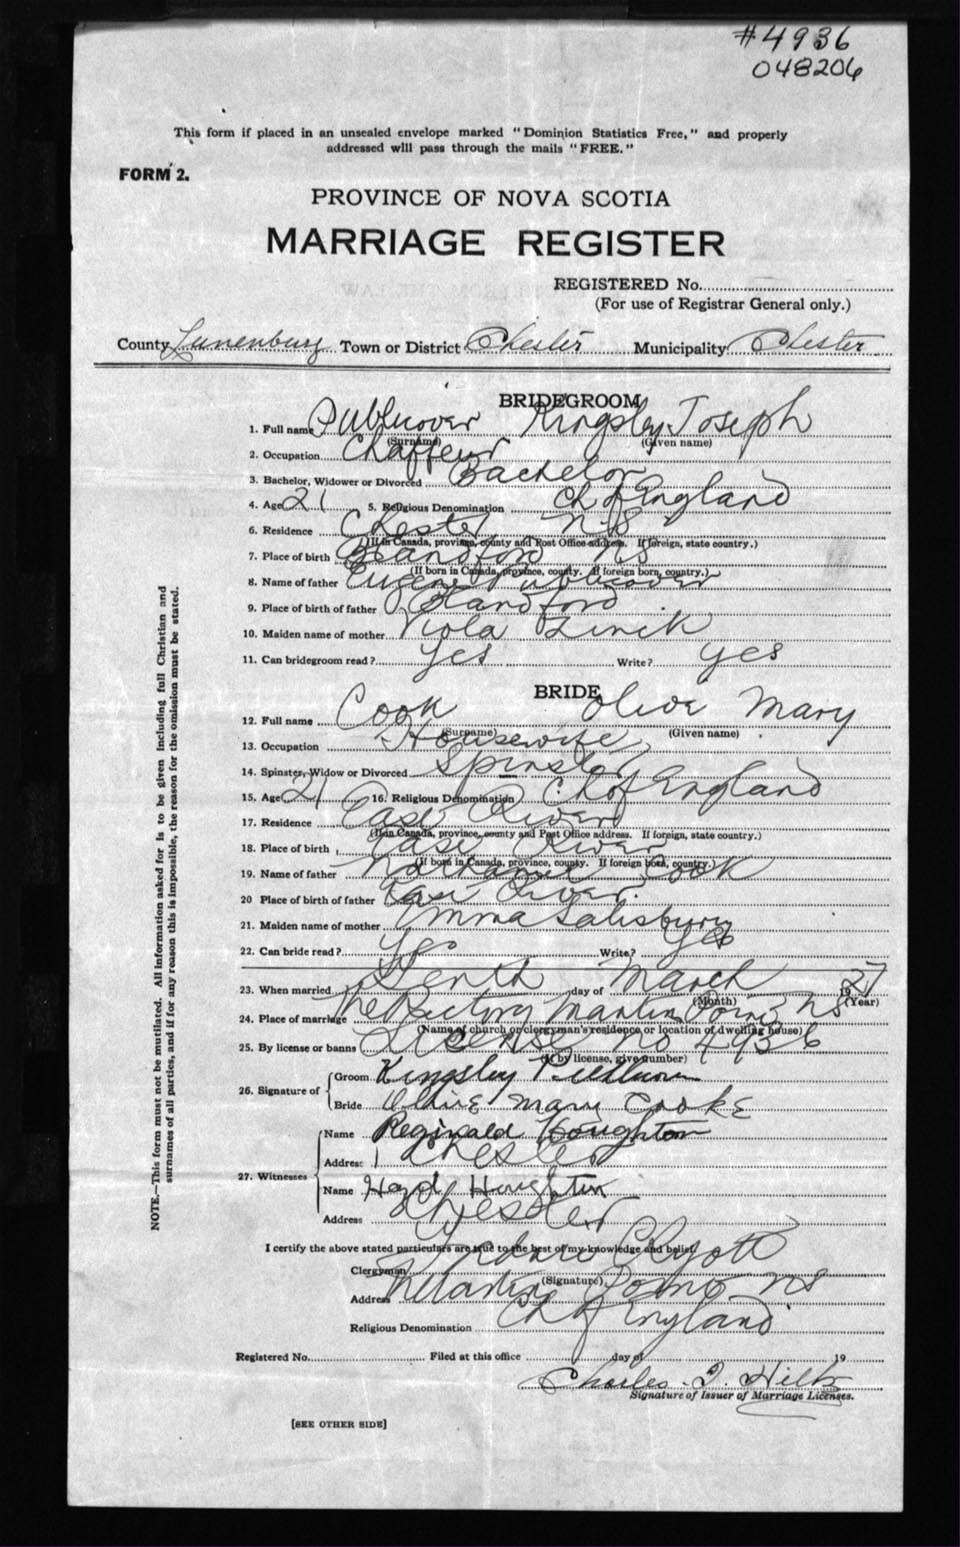 #4936
048206
This form if placed in an unsealed envelope marked "Dominion Statistics Free," and properly
addressed will pass through the mails "FREE."
FORM 2.
PROVINCE OF NOVA SCOTIA
MARRIAGE REGISTER
REGISTERED No.
(For use of Registrar General only.)
County Lunenburg Town or District Chester Municipality Chester
BRIDEGROOM
1. Full name Publicover Kingsley Joseph
(Surname) (Given name)
2. Occupation Chaffeur
3. Bachelor, Widower or Divorced Bachelor
4. Age 21 5. Religious Denomination Ch of England
6. Residence Chester N.S
(If in Canada, province, county and Post Office address. If foreign, state country.)
7. Place of birth Blandford NS
(If born in Canada, province, county. If foreign born, country.)
8. Name of father Eugene Publicover
9. Place of birth of father Blandford
10. Maiden name of mother Viola Zinik
11. Can bridegroom read? Yes Write? yes
BRIDE
12. Full name Cook Olive Mary
(Surname) (Given name)
13. Occupation Housewife
14. Spinster, Widow or Divorced Spinster
15. Age 21 16. Religious Denomination Ch of England
17. Residence East River
(If in Canada, province, county and Post Office address. If foreign, state country.)
18. Place of birth East River
(If born in Canada, province, county. If foreign born, country.)
19. Name of father Nathaniel Cook
20 Place of birth of father East River.
21. Maiden name of mother Emma Salisbury
22. Can bride read? Yes Write? Yes
23. When married Tenth day of March 1927
(Month) (Year)
24. Place of marriage The Rectory Martins Point NS
(Name of church or clergyman's residence or location of dwelling house)
25. By license or banns License no 4936
(If by license, give number)
26. Signature of Groom Kingsley
Bride Olive Mary Cooke
27. Witnesses Name Reginald Houghton
Address Chester
Name Houghton
Address Chester
I certify the above stated particulars are true to the best of my knowledge and belief.
Clergyman
(Signature)
Address Martins Point NS
Religious Denomination Ch of England
Registered No. Filed at this office day of 19
Charles Hilts
Signature of Issuer of Marriage Licenses.
[SEE OTHER SIDE]
NOTE.—This form must not be mutilated. All information asked for is to be given including full Christian and
surnames of all parties, and if for any reason this is impossible, the reason for the omission must be stated.